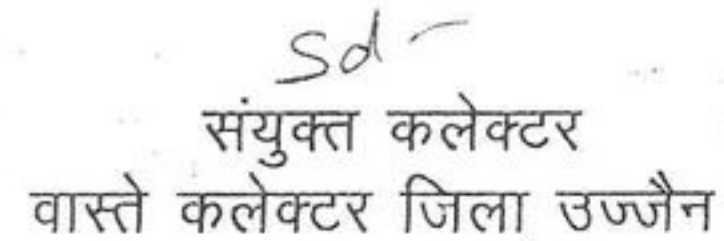 Sd-
संयुक्त कलेक्टर
वास्ते कलेक्टर जिला उज्जैन